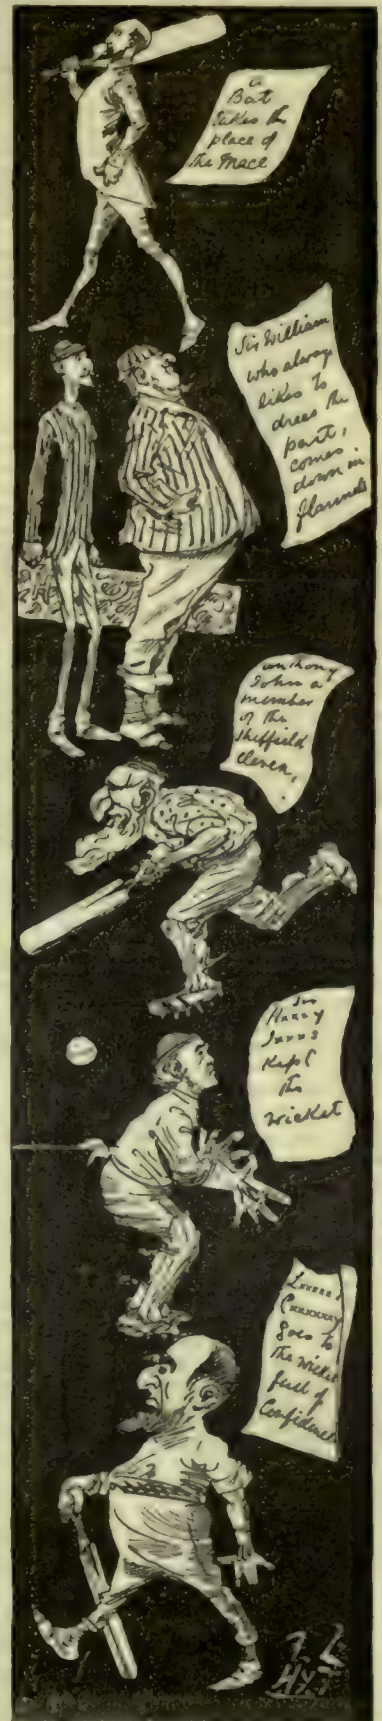 a
Bat
takes the
place of
the Mace
Sir William
who always
likes to
dress the
part,
comes
down in
flannels
Anthony
John a
member
of the
Sheffield
Eleven,
Sir
Hxxxy
Jxxxs
kept
the
wicket
Lxxxxx
Cxxxxxxy
goes to
the wicket
full of
Confidence